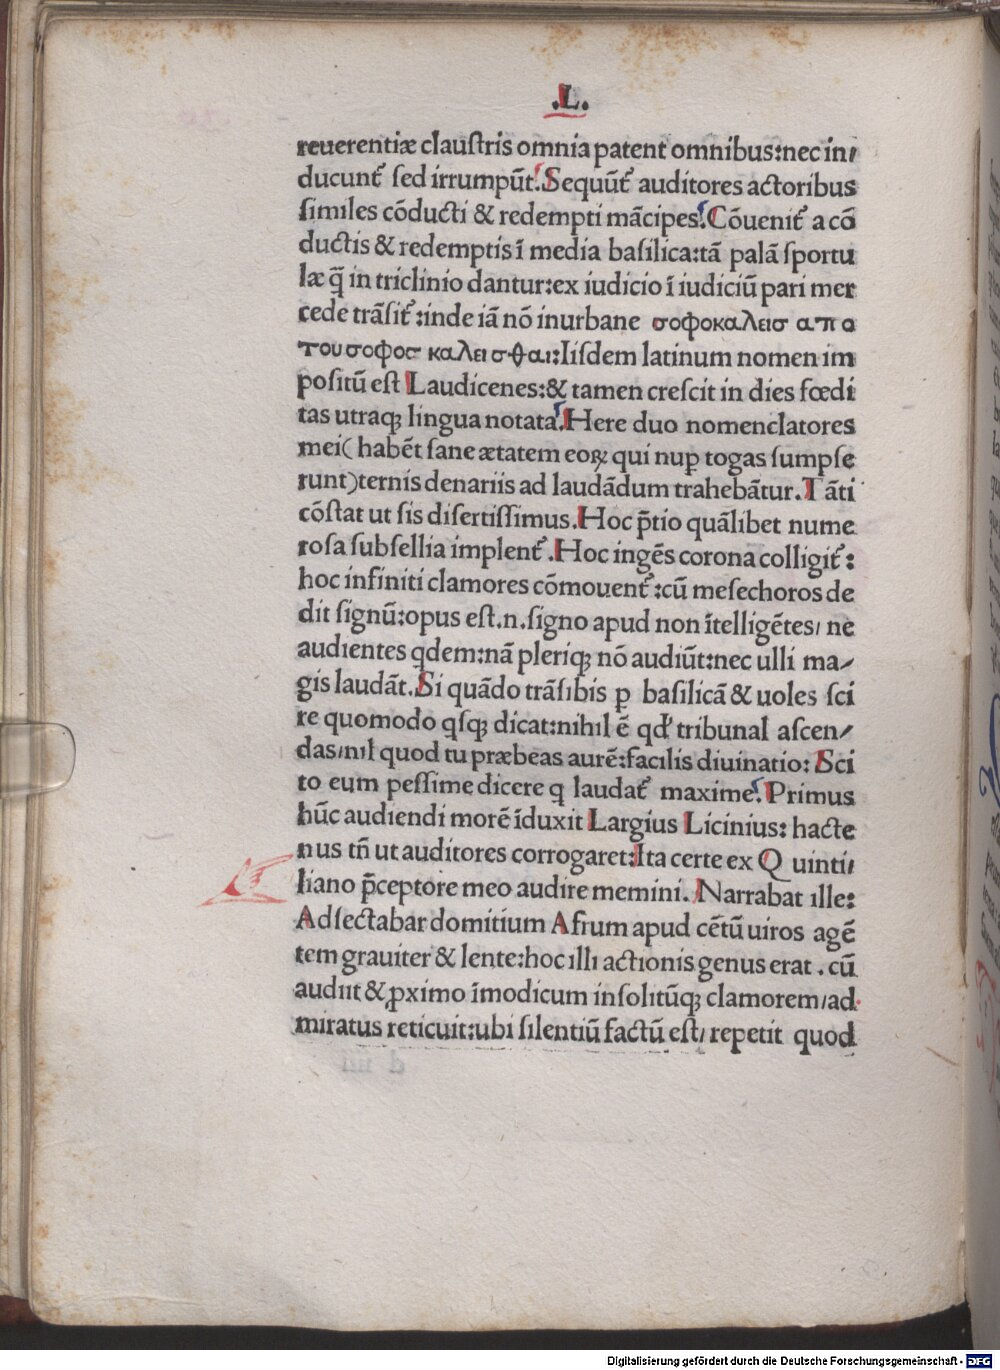 .L.
reuerentiæ clauſtris omnia patent omnibus:nec in/
ducunt᷑ ſed irrumpūt.Sequūt᷑ auditores actoribus
ſimiles cōducti & redempti mācipes.Cōuenit᷑ a cō
ductis & redemptis ī media baſilica:tā palā ſportu
læ q̄ in triclinio dantur:ex iudicio ī iudiciū pari mer
cede trāſit᷑:inde iā nō inurbane σοφοκαλεισ απο
του σοφοσ καλεισθαι:Iiſdem latinum nomen im
poſitū eſt Laudicenes:& tamen creſcit in dies fœdi
tas utraqꝫ lingua notata.Here duo nomenclatores
mei(habēt ſane ætatem eoꝝ qui nuꝑ togas ſumpſe
runt)ternis denariis ad laudādum trahebātur.Tāti
cōſtat ut ſis diſertiſſimus.Hoc p̄tio quālibet nume
roſa ſubſellia implent᷑.Hoc ingēs corona colligit᷑:
hoc infiniti clamores cōmouent᷑:cū meſechoros de
dit ſignū:opus eſt.n.ſigno apud non ītelligētes/ne
audientes qdem:nā pleriqꝫ nō audiūt:nec ulli ma/
gis laudāt.Si quādo trāſibis ꝑ baſilicā & uoles ſci
re quomodo qſqꝫ dicat:nihil ē qd' tribunal aſcen/
das/nil quod tu præbeas aurē:facilis diuinatio:Sci
to eum peſſime dicere q laudat᷑ maxime.Primus
hūc audiendi morē īduxit Largius Licinius:hacte
nus tn̄ ut auditores corrogaret:Ita certe ex Quinti/
liano p̄ceptore meo audire memini.Narrabat ille:
Adſectabar domitium Afrum apud cētū uiros agē
tem grauiter & lente:hoc illi actionis genus erat.cū
audiit & ꝓximo īmodicum inſolitūqꝫ clamorem/ad
miratus reticuit:ubi ſilentiū factū eſt/repetit quod
Digitalisierung gefördert durch die Deutsche Forschungsgemeinschaft - DFG